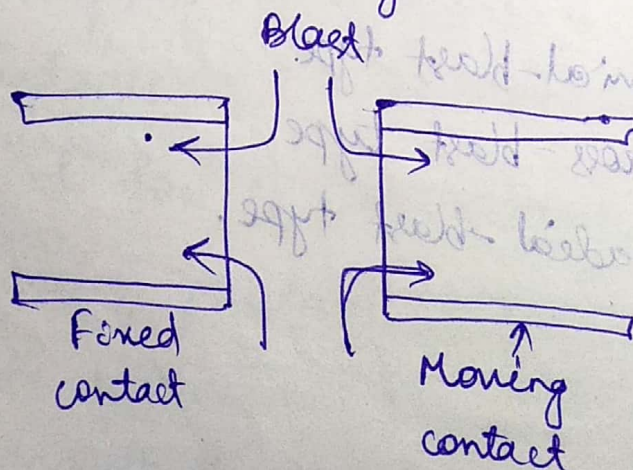 Blast
Fixed
contact
Moving
contact